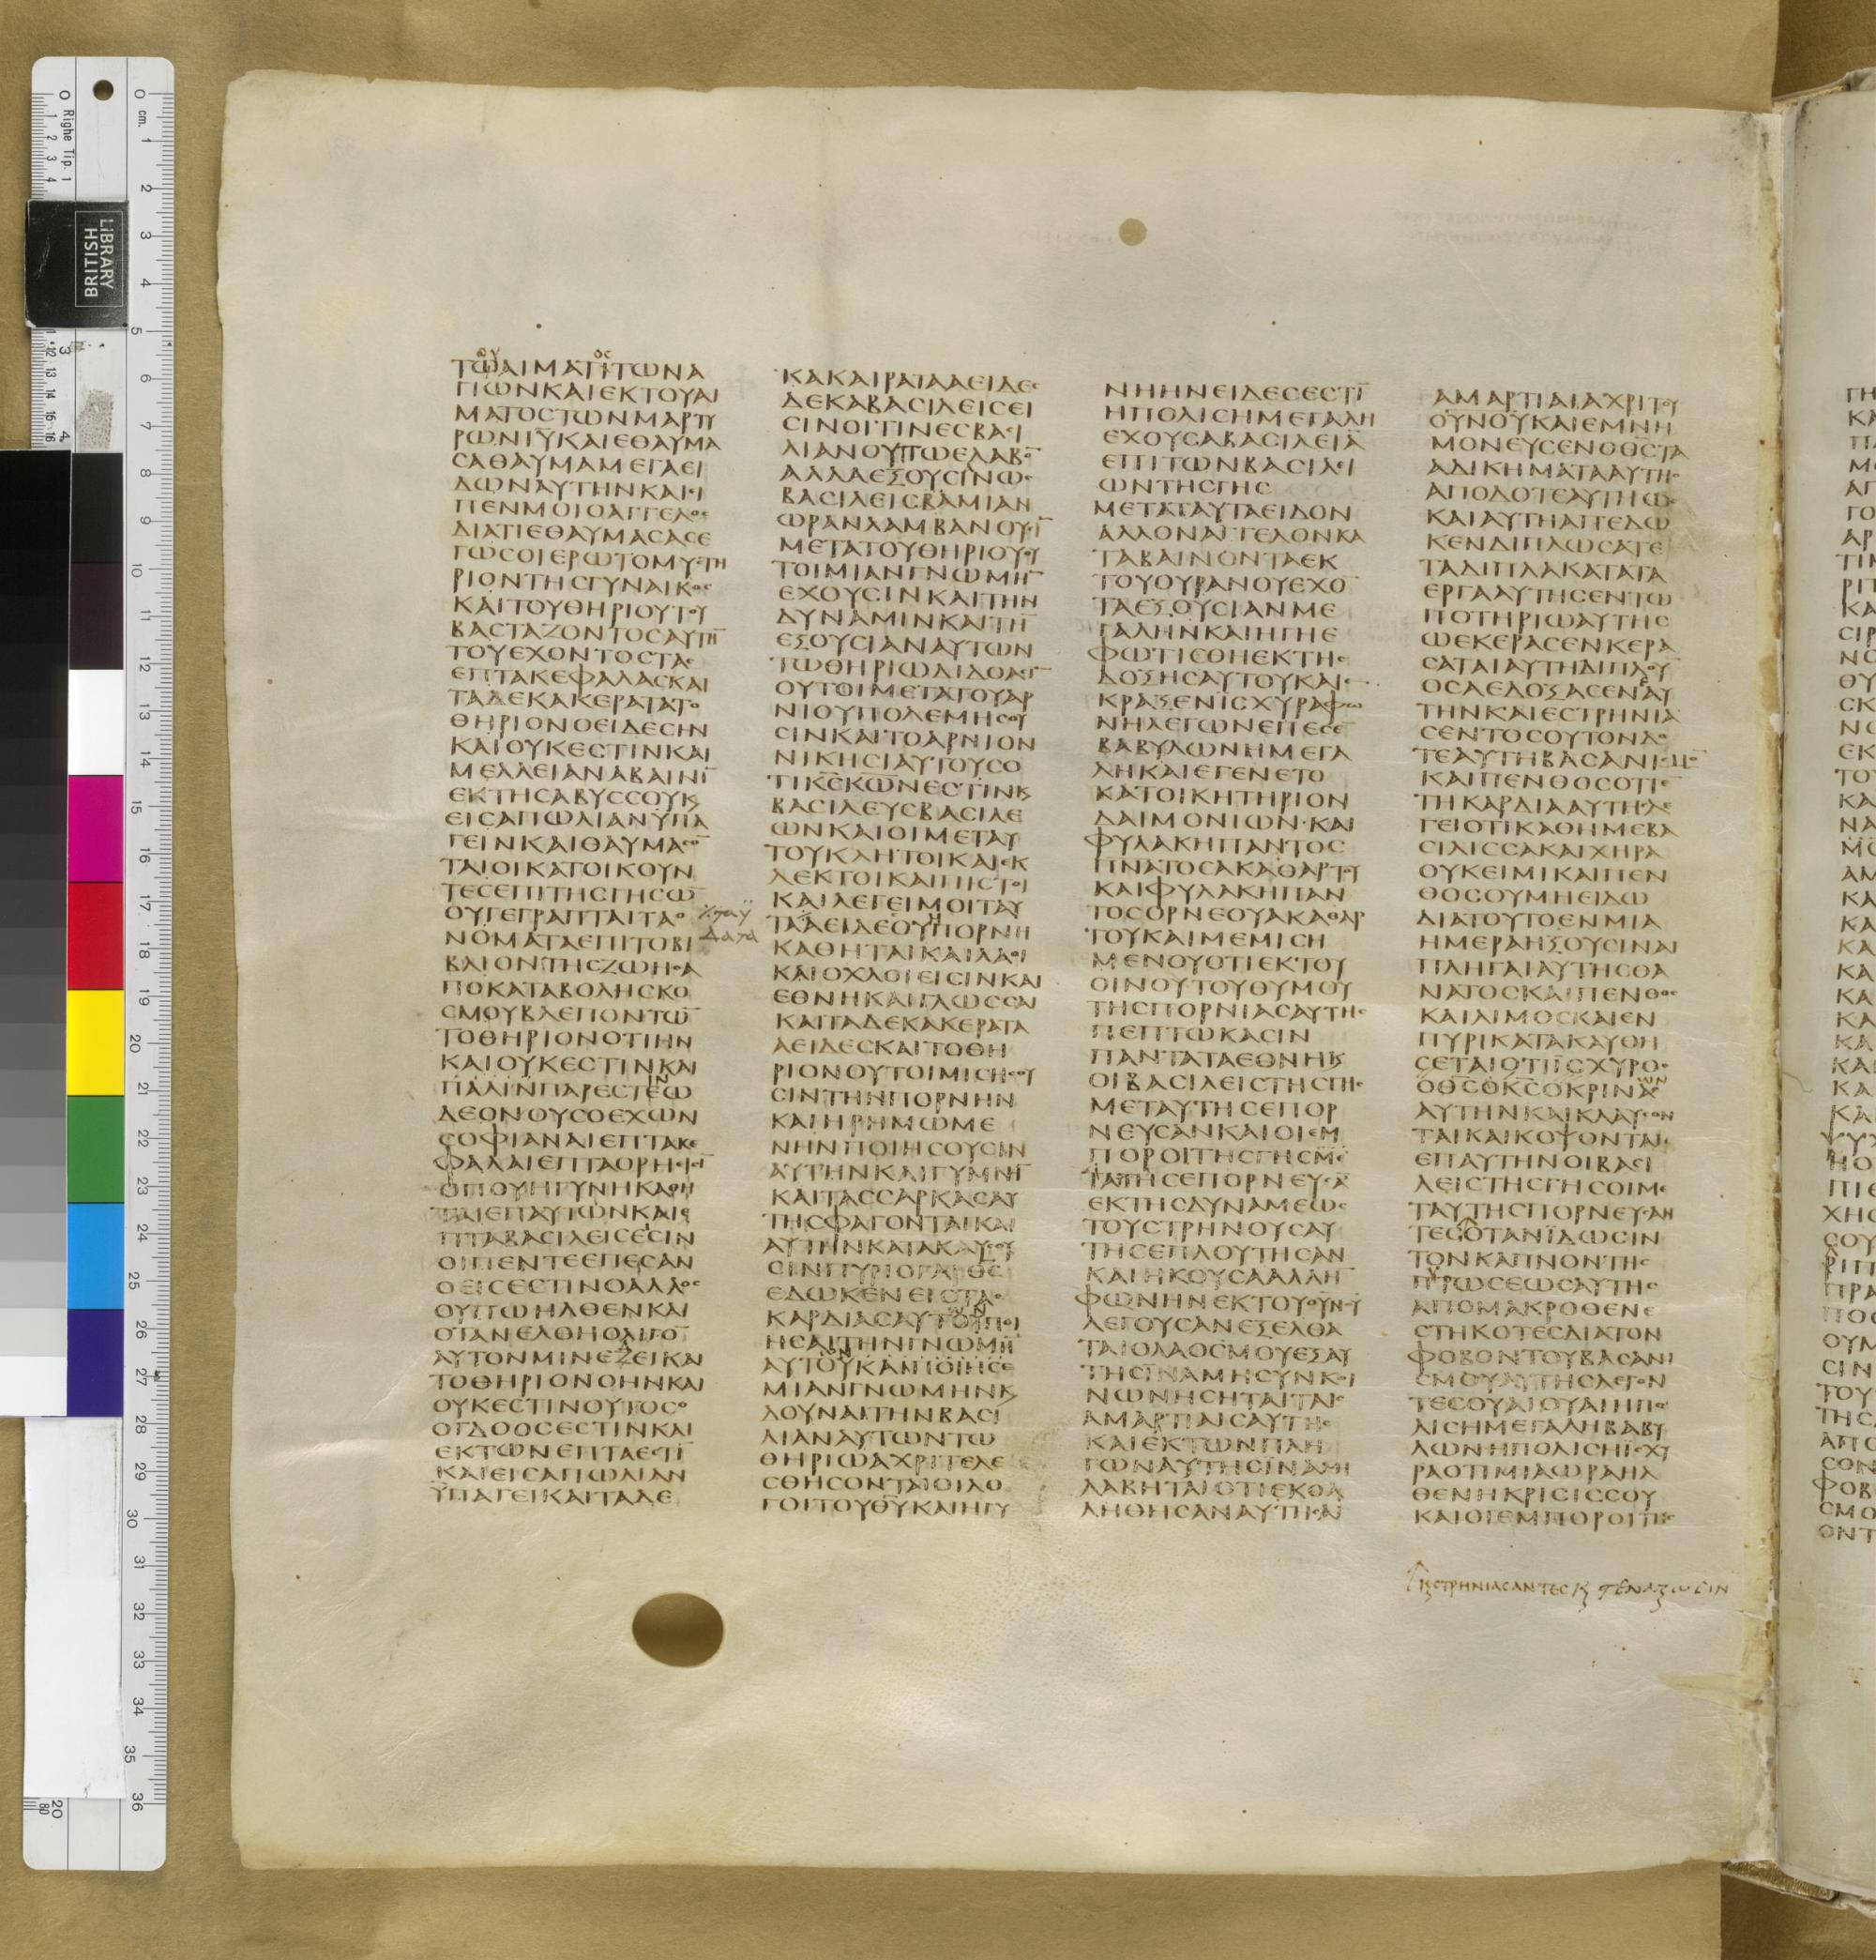 ΤΩΑΙΜΑΤΙΤΩΝΑ
ΓΙΩΝΚΑΙΕΚΤΟΥΑΙ
ΜΑΤΟϹΤΩΝΜΑΡΤΥ
ΡΩΝΙΥ̅ΚΑΙΕΘΑΥΜΑ
ϹΑΘΑΥΜΑΜΕΓΑΕΙ
ΔΩΝΑΥΤΗΝΚΑΙΕΙ
ΠΕΝΜΟΙΟΑΓΓΕΛΟϹ
ΔΙΑΤΙΕΘΑΥΜΑϹΑϹΕ
ΓΩϹΟΙΕΡΩΤΟΜΥϹΤΗ
ΡΙΟΝΤΗϹΓΥΝΑΙΚΟϹ
ΚΑΙΤΟΥΘΗΡΙΟΥΤΟΥ
ΒΑϹΤΑΖΟΝΤΟϹΑΥΤΗ̅
ΤΟΥΕΧΟΝΤΟϹΤΑϹ
ΕΠΤΑΚΕΦΑΛΑϹΚΑΙ
ΤΑΔΕΚΑΚΕΡΑΤΑΤΟ
ΘΗΡΙΟΝΟΕΙΔΕϹΗΝ
ΚΑΙΟΥΚΕϹΤΙΝΚΑΙ
ΜΕΛΛΕΙΑΝΑΒΑΙΝΙ̅
ΕΚΤΗϹΑΒΥϹϹΟΥϗ
ΕΙϹΑΠΩΛΙΑΝΥΠΑ
ΓΕΙΝΚΑΙΘΑΥΜΑϹΟ̅
ΤΑΙΟΙΚΑΤΟΙΚΟΥΝ
ΤΕϹΕΠΙΤΗϹΓΗϹΩ̅
ΟΥΓΕΓΡΑΠΤΑΙΤΑΟ
ΝΟΜΑΤΑΕΠΙΤΟΒΙ
ΒΛΙΟΝΤΗϹΖΩΗϹΑ
ΠΟΚΑΤΑΒΟΛΗϹΚΟ
ϹΜΟΥΒΛΕΠΟΝΤΩ̅
ΤΟΘΗΡΙΟΝΟΤΙΗΝ
ΚΑΙΟΥΚΕϹΤΙΝΚΑΙ
ΠΑΛΙΝΠΑΡΕϹΤΕΩ
ΔΕΟΝΟΥϹΟΕΧΩΝ
ϹΟΦΙΑΝΑΙΕΠΤΑΚΕ
ΦΑΛΑΙΕΠΤΑΟΡΗΕΙϹΙ̅
ΟΠΟΥΗΓΥΝΗΚΑΘΗ
ΤΑΙΕΠΑΥΤΩΝΚΑΙΕ
ΠΤΑΒΑϹΙΛΕΙϹΕϹΙΝ
ΟΙΠΕΝΤΕΕΠΕϹΑΝ
ΟΕΙϹΕϹΤΙΝΟΑΛΛΟϹ
ΟΥΠΩΗΛΘΕΝΚΑΙ
ΟΤΑΝΕΛΘΗΟΛΙΓΟ̅
ΑΥΤΟΝΜΙΝΕΖΕΙΚΑΙ
ΤΟΘΗΡΙΟΝΟΗΝΚΑΙ
ΟΥΚΕϹΤΙΝΟΥΤΟϹΟ
ΟΓΔΟΟϹΕϹΤΙΝΚΑΙ
ΕΚΤΩΝΕΠΤΑΕϹΤΙ̅
ΚΑΙΕΙϹΑΠΩΛΙΑΝ
ΫΠΑΓΕΙΚΑΙΤΑΔΕ
ΚΑΚΑΙΡΑΤΑΑΕΙΔΕϹ
ΔΕΚΑΒΑϹΙΛΕΙϹΕΙ
ϹΙΝΟΙΤΙΝΕϹΒΑϹΙ
ΛΙΑΝΟΥΠΩΕΛΑΒΟ̅
ΑΛΛΑΕΞΟΥϹΙΝΩϹ
ΒΑϹΙΛΕΙϹΒΑΜΙΑΝ
ΩΡΑΝΛΑΜΒΑΝΟΥϹΙ̅
ΜΕΤΑΤΟΥΘΗΡΙΟΥΟΥ
ΤΟΙΜΙΑΝΓΝΩΜΗ̅
ΕΧΟΥϹΙΝΚΑΙΤΗΝ
ΔΥΝΑΜΙΝΚΑΙΤΗ̅
ΕΞΟΥϹΙΑΝΑΥΤΩΝ
ΤΩΘΗΡΙΩΔΙΔΟΑϹΙ̅
ΟΥΤΟΙΜΕΤΑΤΟΥΑΡ
ΝΙΟΥΠΟΛΕΜΗϹΟΥ
ϹΙΝΚΑΙΤΟΑΡΝΙΟΝ
ΝΙΚΗϹΙΑΥΤΟΥϹΟ
ΤΙΚϹ̅ΚΩ̅ΝΕϹΤΙΝϗ
ΒΑϹΙΛΕΥϹΒΑϹΙΛΕ
ΩΝΚΑΙΟΙΜΕΤΑΥ
ΤΟΥΚΛΗΤΟΙΚΑΙΕΚ
ΛΕΚΤΟΙΚΑΙΠΙϹΤΟΙ
ΚΑΙΛΕΓΕΙΜΟΙΤΑΥ
ΤΑΑΕΙΔΕϹΟΥΗΠΟΡΝΗ
ΚΑΘΗΤΑΙΚΑΙΛΑΟΙ
ΚΑΙΟΧΛΟΙΕΙϹΙΝΚΑΙ
ΕΘΝΗΚΑΙΓΛΩϹϹΑΙ
ΚΑΙΤΑΔΕΚΑΚΕΡΑΤΑ
ΑΕΙΔΕϹΚΑΙΤΟΘΗ
ΡΙΟΝΟΥΤΟΙΜΙϹΗϹΟΥ
ϹΙΝΤΗΝΠΟΡΝΗΝ
ΚΑΙΗΡΗΜΩΜΕ
ΝΗΝΠΟΙΗϹΟΥϹΙΝ
ΑΥΤΗΝΚΑΙΓΥΜΝΗ̅
ΚΑΙΤΑϹϹΑΡΚΑϹΑΥ
ΤΗϹΦΑΓΟΝΤΑΙΚΑΙ
ΑΥΤΗΝΚΑΤΑΚΑΥϹΟΥ
ϹΙΝΠΥΡΙΟΓΑΡΘϹ̅
ΕΔΩΚΕΝΕΙϹΤΑϹ
ΚΑΡΔΙΑϹΑΥΤΟΠΟΙ
ΗϹΑΙΤΗΝΓΝΩΜΗ̅
ΑΥΤΟΥΚΑΙΠΟΙΗϹΕ
ΜΙΑΝΓΝΩΜΗΝϗ
ΔΟΥΝΑΙΤΗΝΒΑϹΙ
ΛΙΑΝΑΥΤΩΝΤΩ
ΘΗΡΙΩΑΧΡΙΤΕΛΕ
ϹΘΗϹΟΝΤΑΙΟΙΛΟ
ΓΟΙΤΟΥΘΥ̅ΚΑΙΗΓΥ
ΝΗΗΝΕΙΔΕϹΕϹΤΙ̅
ΗΠΟΛΙϹΗΜΕΓΑΛΗ
ΕΧΟΥϹΑΒΑϹΙΛΕΙΑ̅
ΕΠΙΤΩΝΒΑϹΙΛΕΙ
ΩΝΤΗϹΓΗϹ
ΜΕΤΑΤΑΥΤΑΕΙΔΟΝ
ΑΛΛΟΝΑΓΓΕΛΟΝΚΑ
ΤΑΒΑΙΝΟΝΤΑΕΚ
ΤΟΥΟΥΡΑΝΟΥΕΧΟ̅
ΤΑΕΞΟΥϹΙΑΝΜΕ
ΓΑΛΗΝΚΑΙΗΓΗΕ
ΦΩΤΙϹΘΗΕΚΤΗϹ
ΔΟΞΗϹΑΥΤΟΥΚΑΙΕ
ΚΡΑΞΕΝΙϹΧΥΡΑΦΩ
ΝΗΛΕΓΩΝΕΠΕϹΕ̅
ΒΑΒΥΛΩΝΗΜΕΓΑ
ΛΗΚΑΙΕΓΕΝΕΤΟ
ΚΑΤΟΙΚΗΤΗΡΙΟΝ
ΔΑΙΜΟΝΙΩΝ·ΚΑΙ
ΦΥΛΑΚΗΠΑΝΤΟϹ
ΠΝ̅ΑΤΟϹΑΚΑΘΑΡΤΟΥ
ΚΑΙΦΥΛΑΚΗΠΑΝ
ΤΟϹΟΡΝΕΟΥΑΚΑΘΑΡ
ΤΟΥΚΑΙΜΕΜΙϹΗ
ΜΕΝΟΥΟΤΙΕΚΤΟΥ
ΟΙΝΟΥΤΟΥΘΥΜΟΥ
ΤΗϹΠΟΡΝΙΑϹΑΥΤΗϹ
ΠΕΠΤΩΚΑϹΙΝ
ΠΑΝΤΑΤΑΕΘΝΗϗ
ΟΙΒΑϹΙΛΕΙϹΤΗϹΓΗϹ
ΜΕΤΑΥΤΗϹΕΠΟΡ
ΝΕΥϹΑΝΚΑΙΟΙΕΜ
ΠΟΡΟΙΤΗϹΓΗϹΜΕ
ΤΑΤΗϹΕΠΟΡΝΕΥϹΑ̅
ΕΚΤΗϹΔΥΝΑΜΕΩϹ
ΤΟΥϹΤΡΗΝΟΥϹΑΥ
ΤΗϹΕΠΛΟΥΤΗϹΑΝ
ΚΑΙΗΚΟΥϹΑΑΛΛΗ̅
ΦΩΝΗΝΕΚΤΟΥΟΥΝΟΥ
ΛΕΓΟΥϹΑΝΕΞΕΛΘΑ
ΤΑΙΟΛΑΟϹΜΟΥΕΞΑΥ
ΤΗϹΙΝΑΜΗϹΥΝΚΟΙ
ΝΩΝΗϹΗΤΑΙΤΑΙϹ
ΑΜΑΡΤΙΑΙϹΑΥΤΗϹ
ΚΑΙΕΚΤΩΝΠΛΗ
ΓΩΝΑΥΤΗϹΙΝΑΜΗ
ΛΑΒΗΤΑΙΟΤΙΕΚΟΛ
ΛΗΘΗϹΑΝΑΥΤΗϹΑΙ
ΑΜΑΡΤΙΑΙΑΧΡΙΤΟΥ
ΟΥΝΟΥΚΑΙΕΜΝΗ
ΜΟΝΕΥϹΕΝΟΘϹ̅ΤΑ
ΑΔΙΚΗΜΑΤΑΑΥΤΗϹ
ΑΠΟΔΟΤΕΑΥΤΗΩϹ
ΚΑΙΑΥΤΗΑΠΕΔΩ
ΚΕΝΔΙΠΛΩϹΑΤΕ
ΤΑΔΙΠΛΑΚΑΤΑΤΑ
ΕΡΓΑΑΥΤΗϹΕΝΤΩ
ΠΟΤΗΡΙΩΑΥΤΗϹ
ΩΕΚΕΡΑϹΕΝΚΕΡΑ
ϹΑΤΑΙΑΥΤΗΔΙΠΛΟΥ̅
ΟϹΑΕΔΟΞΑϹΕΝΑΥ
ΤΗΝΚΑΙΕϹΤΡΗΝΙΑ
ϹΕΝΤΟϹΟΥΤΟΝΔΟ
ΤΕΑΥΤΗΒΑϹΑΝΙϹΜΟ̅
ΚΑΙΠΕΝΘΟϹΟΤΙΕ̅
ΤΗΚΑΡΔΙΑΑΥΤΗϹΛΕ
ΓΕΙΟΤΙΚΑΘΗΜΕΒΑ
ϹΙΛΙϹϹΑΚΑΙΧΗΡΑ
ΟΥΚΕΙΜΙΚΑΙΠΕΝ
ΘΟϹΟΥΜΗΕΙΔΩ
ΔΙΑΤΟΥΤΟΕΝΜΙΑ
ΗΜΕΡΑΗΞΟΥϹΙΝΑΙ
ΠΛΗΓΑΙΑΥΤΗϹΘΑ
ΝΑΤΟϹΚΑΙΠΕΝΘΟϹ
ΚΑΙΛΙΜΟϹΚΑΙΕΝ
ΠΥΡΙΚΑΤΑΚΑΥΘΗ
ϹΕΤΑΙΟΤΙΙϹΧΥΡΟϹ
ΟΘϹ̅ΟΚϹ̅ΟΚΡΙΝΑϹ
ΑΥΤΗΝΚΑΙΚΛΑΥϹΟΝ
ΤΑΙΚΑΙΚΟΨΟΝΤΑΙ
ΕΠΑΥΤΗΝΟΙΒΑϹΙ
ΛΕΙϹΤΗϹΓΗϹΟΙΜΕ
ΤΑΥΤΗϹΠΟΡΝΕΥϹΑΝ
ΤΕϹΟΤΑΝΪΔΩϹΙΝ
ΤΟΝΚΑΠΝΟΝΤΗϹ
ΠΥΡΩϹΕΩϹΑΥΤΗϹ
ΑΠΟΜΑΚΡΟΘΕΝΕ
ϹΤΗΚΟΤΕϹΔΙΑΤΟΝ
ΦΟΒΟΝΤΟΥΒΑϹΑΝΙ
ϹΜΟΥΑΥΤΗϹΛΕΓΟΝ
ΤΕϹΟΥΑΙΟΥΑΙΗΠΟ
ΛΙϹΗΜΕΓΑΛΗΒΑΒΥ
ΛΩΝΗΠΟΛΙϹΗΙϹΧΥ
ΡΑΟΤΙΜΙΑΩΡΑΗΛ
ΘΕΝΗΚΡΙϹΙϹϹΟΥ
ΚΑΙΟΙΕΜΠΟΡΟΙΤΗϹ
ϗϹΤΡΗΝΙΑϹΑΝΤΕϹ
BRITISH
LIBRARY
Righe Tip. 1
cm.